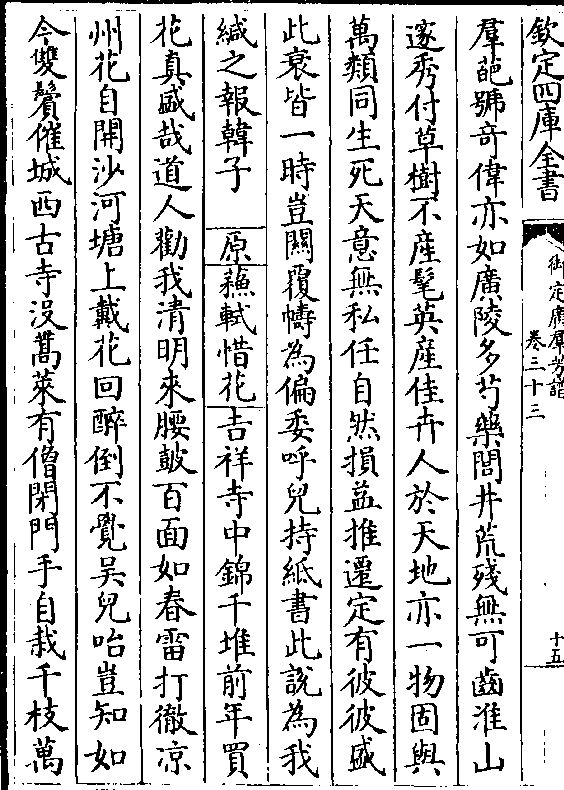 欽定四庫全書
御定廣羣芳譜
卷三十三
十五
羣葩號奇偉亦如廣陵多芍藥閭井荒殘無可齒淮山
邃秀付草樹不産髦英産佳卉人於天地亦一物固與
萬類同生死天意無私任自然損益推遷定有彼彼盛
此衰皆一時豈關覆幬為偏委呼兒持紙書此說為我
緘之報韓子 原蘇軾惜花吉祥寺中錦千堆前年買
花真盛哉道人勸我清明來腰鼓百面如春雷打徹凉
州花自開沙河塘上戴花回醉倒不覺吳兒咍豈知如
今雙鬢催城西古寺没蒿萊有僧閉門手自栽千枝萬